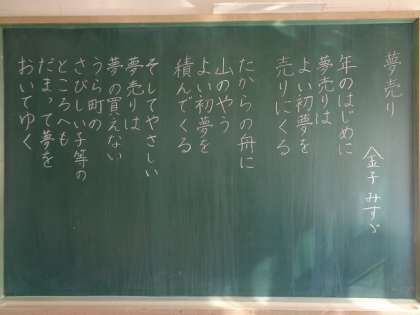 夢売り
金子みすゞ
年のはじめに
夢売りは
よい初夢を
売りにくる
たからの舟に
山のやう
よい初夢を
積んでくる
そしてやさしい
夢売りは
夢の買えない
うら町の
さびしい子等の
ところへも
だまって夢を
おいてゆく